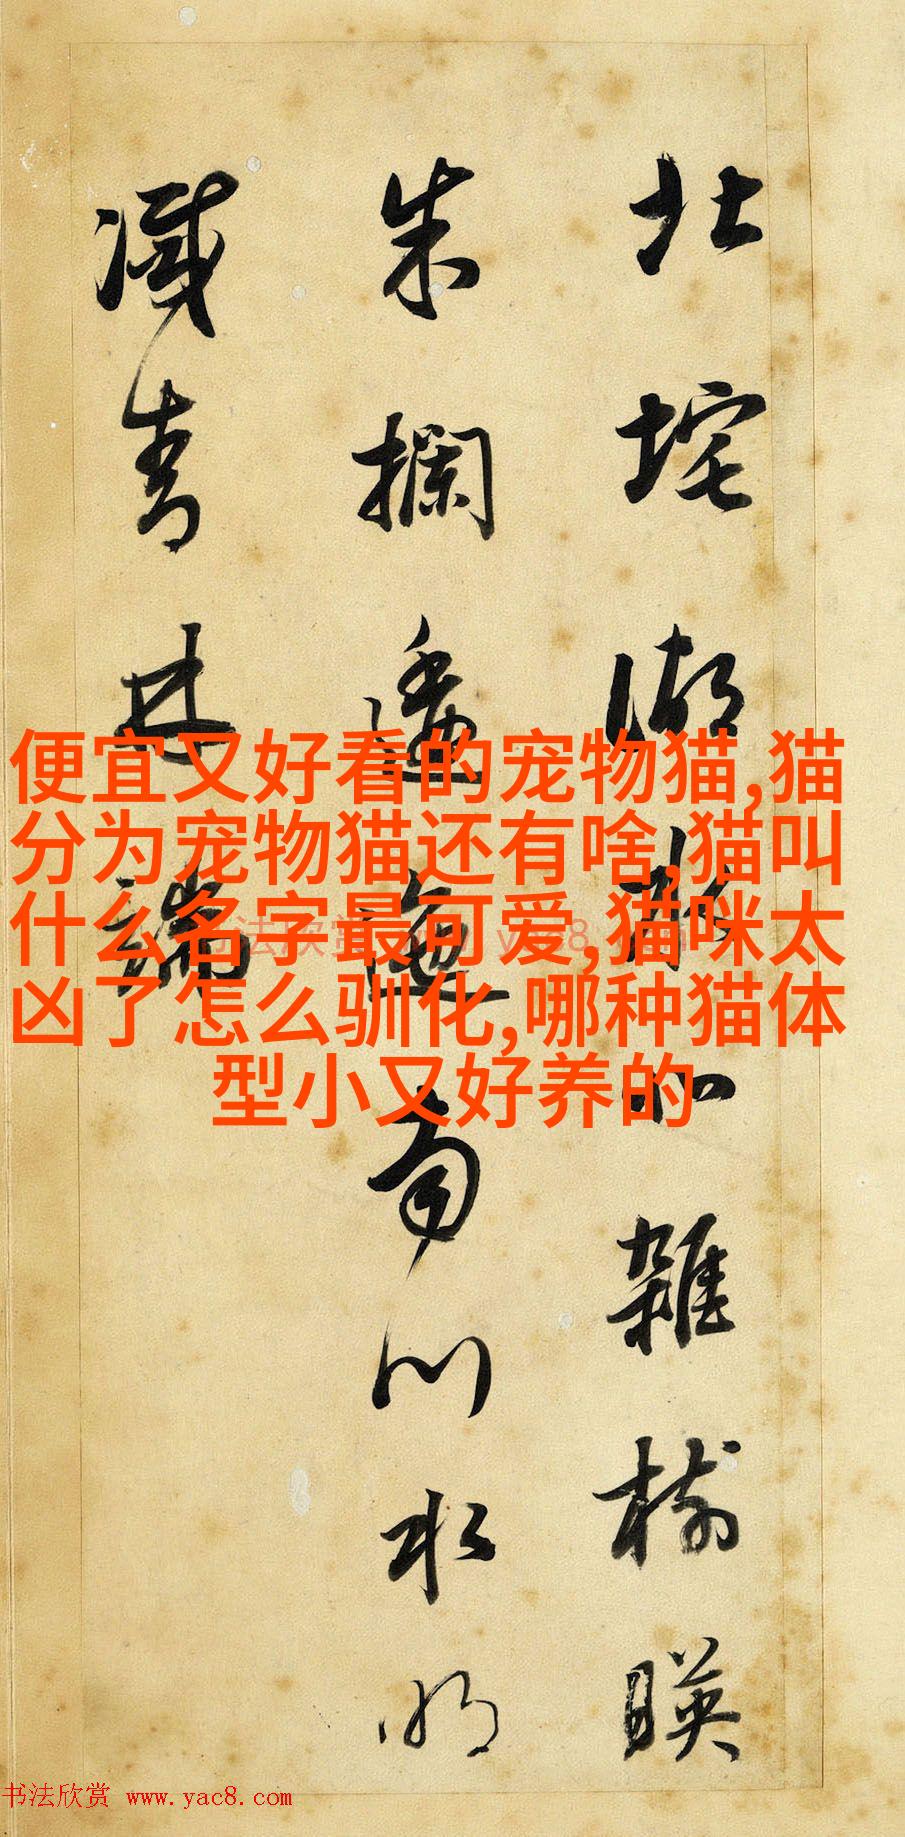 北垞湖北雜樹暎
朱攔逶迤南川水明
滅青林端
便宜又好看的宠物猫,猫
分为宠物猫还有啥,猫叫
什么名字最可爱,猫咪太
凶了怎么驯化,哪种猫体
型小又好养的
书法欣赏 www.yac8.com